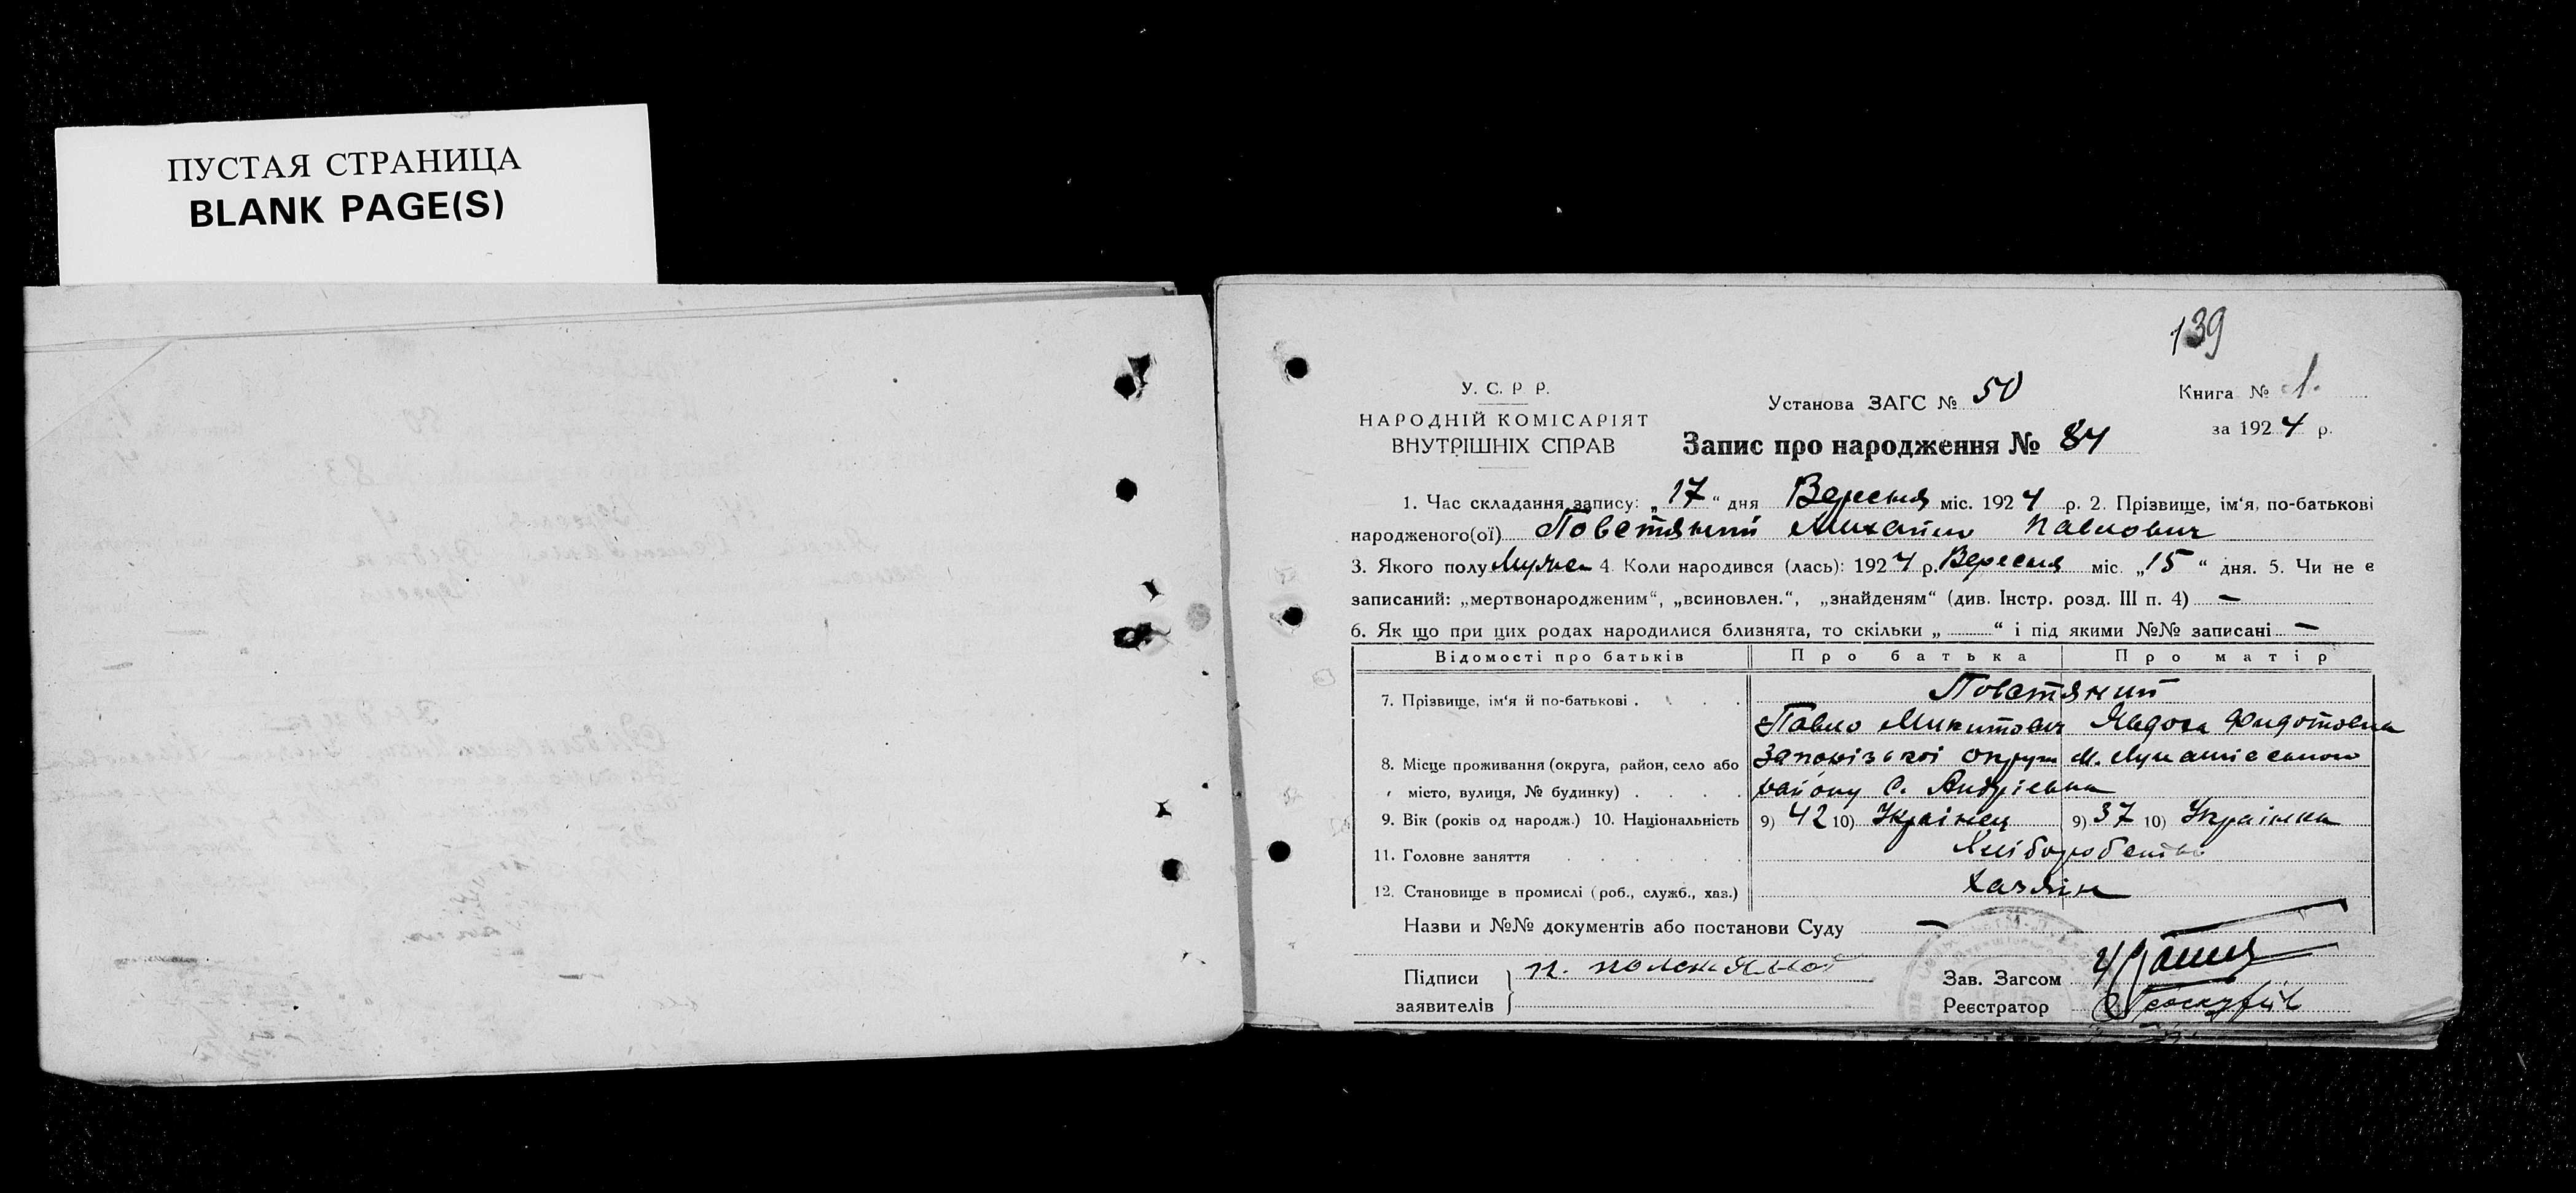 ПУСТАЯ СТРАНИЦА
BLANK PAGE(S)
139
У. С. Р Р.
НАРОДНІЙ КОМІСАРІЯТ
ВНУТРІШНІХ СПРАВ
Установа ЗАГС № 50
Книга № 1.
за 1924 р.
Запис про народження № 84
1. Час складання запису: „17“ дня Вересня міс. 1924 р. 2. Прізвище, ім‘я, по-батькові
народженого(ої) Повстяний Михайло Павлович
3. Якого полу Мужеск 4. Коли народився (лась): 1924 р. Вересня міс. „15“ дня. 5. Чи не є
записаний: „мертвонародженим“, „всиновлен.“, „знайденям“ (див. Інстр. розд. III п. 4) —
6. Як що при цих родах народилися близнята, то скільки „ “ і під якими №№ записані —
Відомості про батьків Про батька Про матір
7. Прізвище, ім‘я й по-батькові . Повстяний
Павло Микитович Явдоха Федотовна
8. Місце проживання (округа, район, село або Запорізької округи М.
місто, вулиця, № будинку) . району С. Андрієвка
9. Вік (років од народж.) 10. Національність 9) 42 10) Українец 9) 37 10) Українка
11. Головне заняття Хліборобство
12. Становище в промислі (роб., служб., хаз.) Хазяїн
Назви и №№ документів або постанови Суду —
Підписи
заявителів
Зав. Загсом
Реєстратор